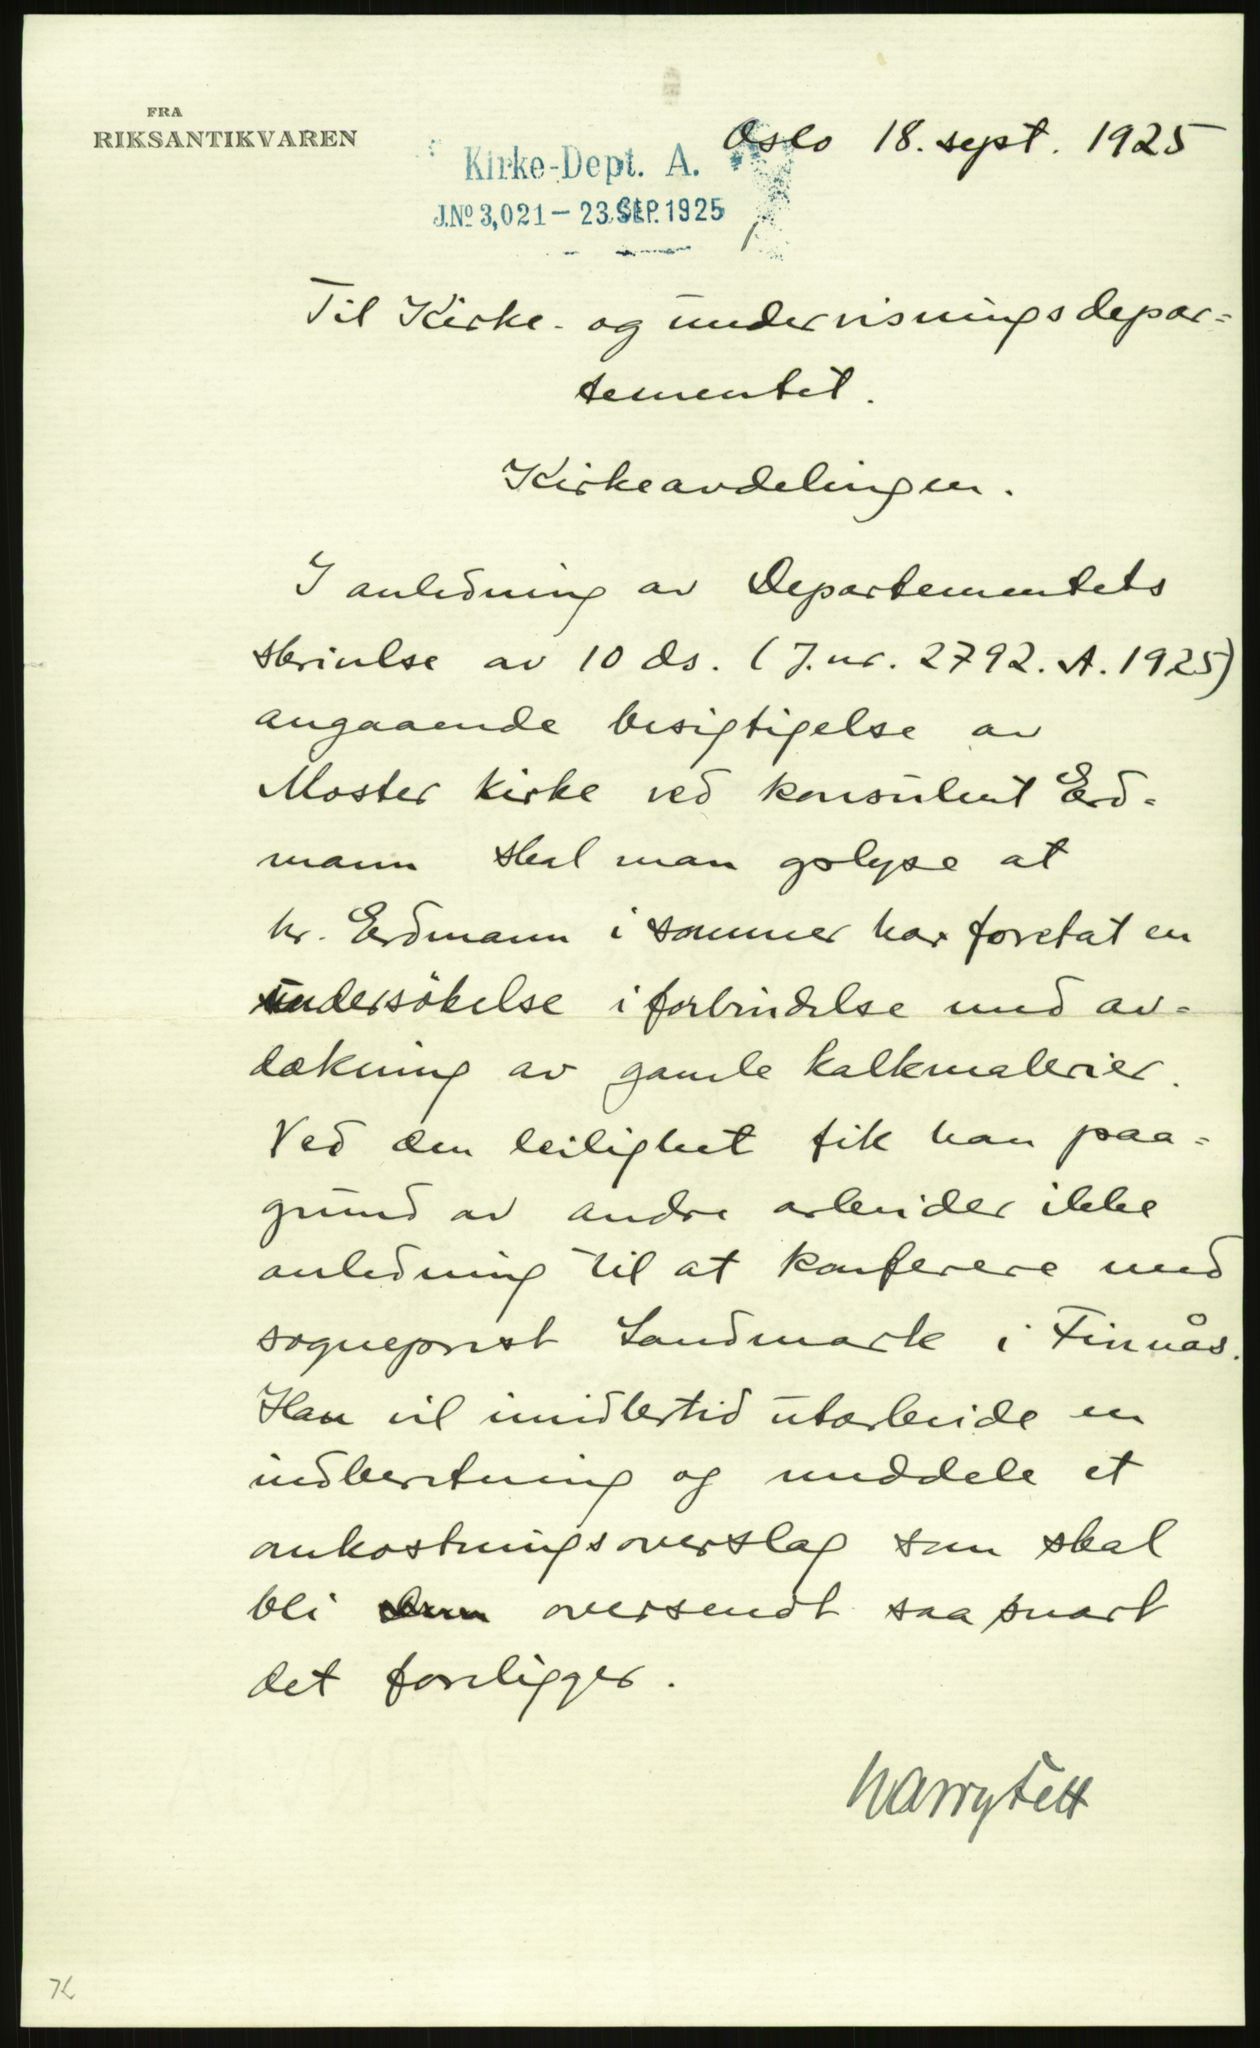 FRA
RIKSANTIKVAREN
Oslo 18. sept. 1925
Kirke-Dept. A.
J.Nº 3,021 — 23 SEP. 1925
Til Kirke- og undervisningsdepar=
tementet.
Kirkeavdelingen.
I anledning av Departementets
skrivelse av 10 ds. (J.nr. 2792. A. 1925)
angaaende besigtigelse av
Moster kirke ved konsulent Erd=
mann skal man oplyse at
hr. Erdmann i sommer har foretat en
undersökelse i forbindelse med av=
dækning av gamle kalkmalerier.
Ved den leilighet fik han paa=
grund av andre arbeider ikke
anledning til at konferere med
sogneprest Landmark i Finnås.
Han vil imidlertid utarbeide en
indberetning og meddele et
omkostningsoverslag som skal
bli oversendt saa snart
det foreligger.
Harry Fett